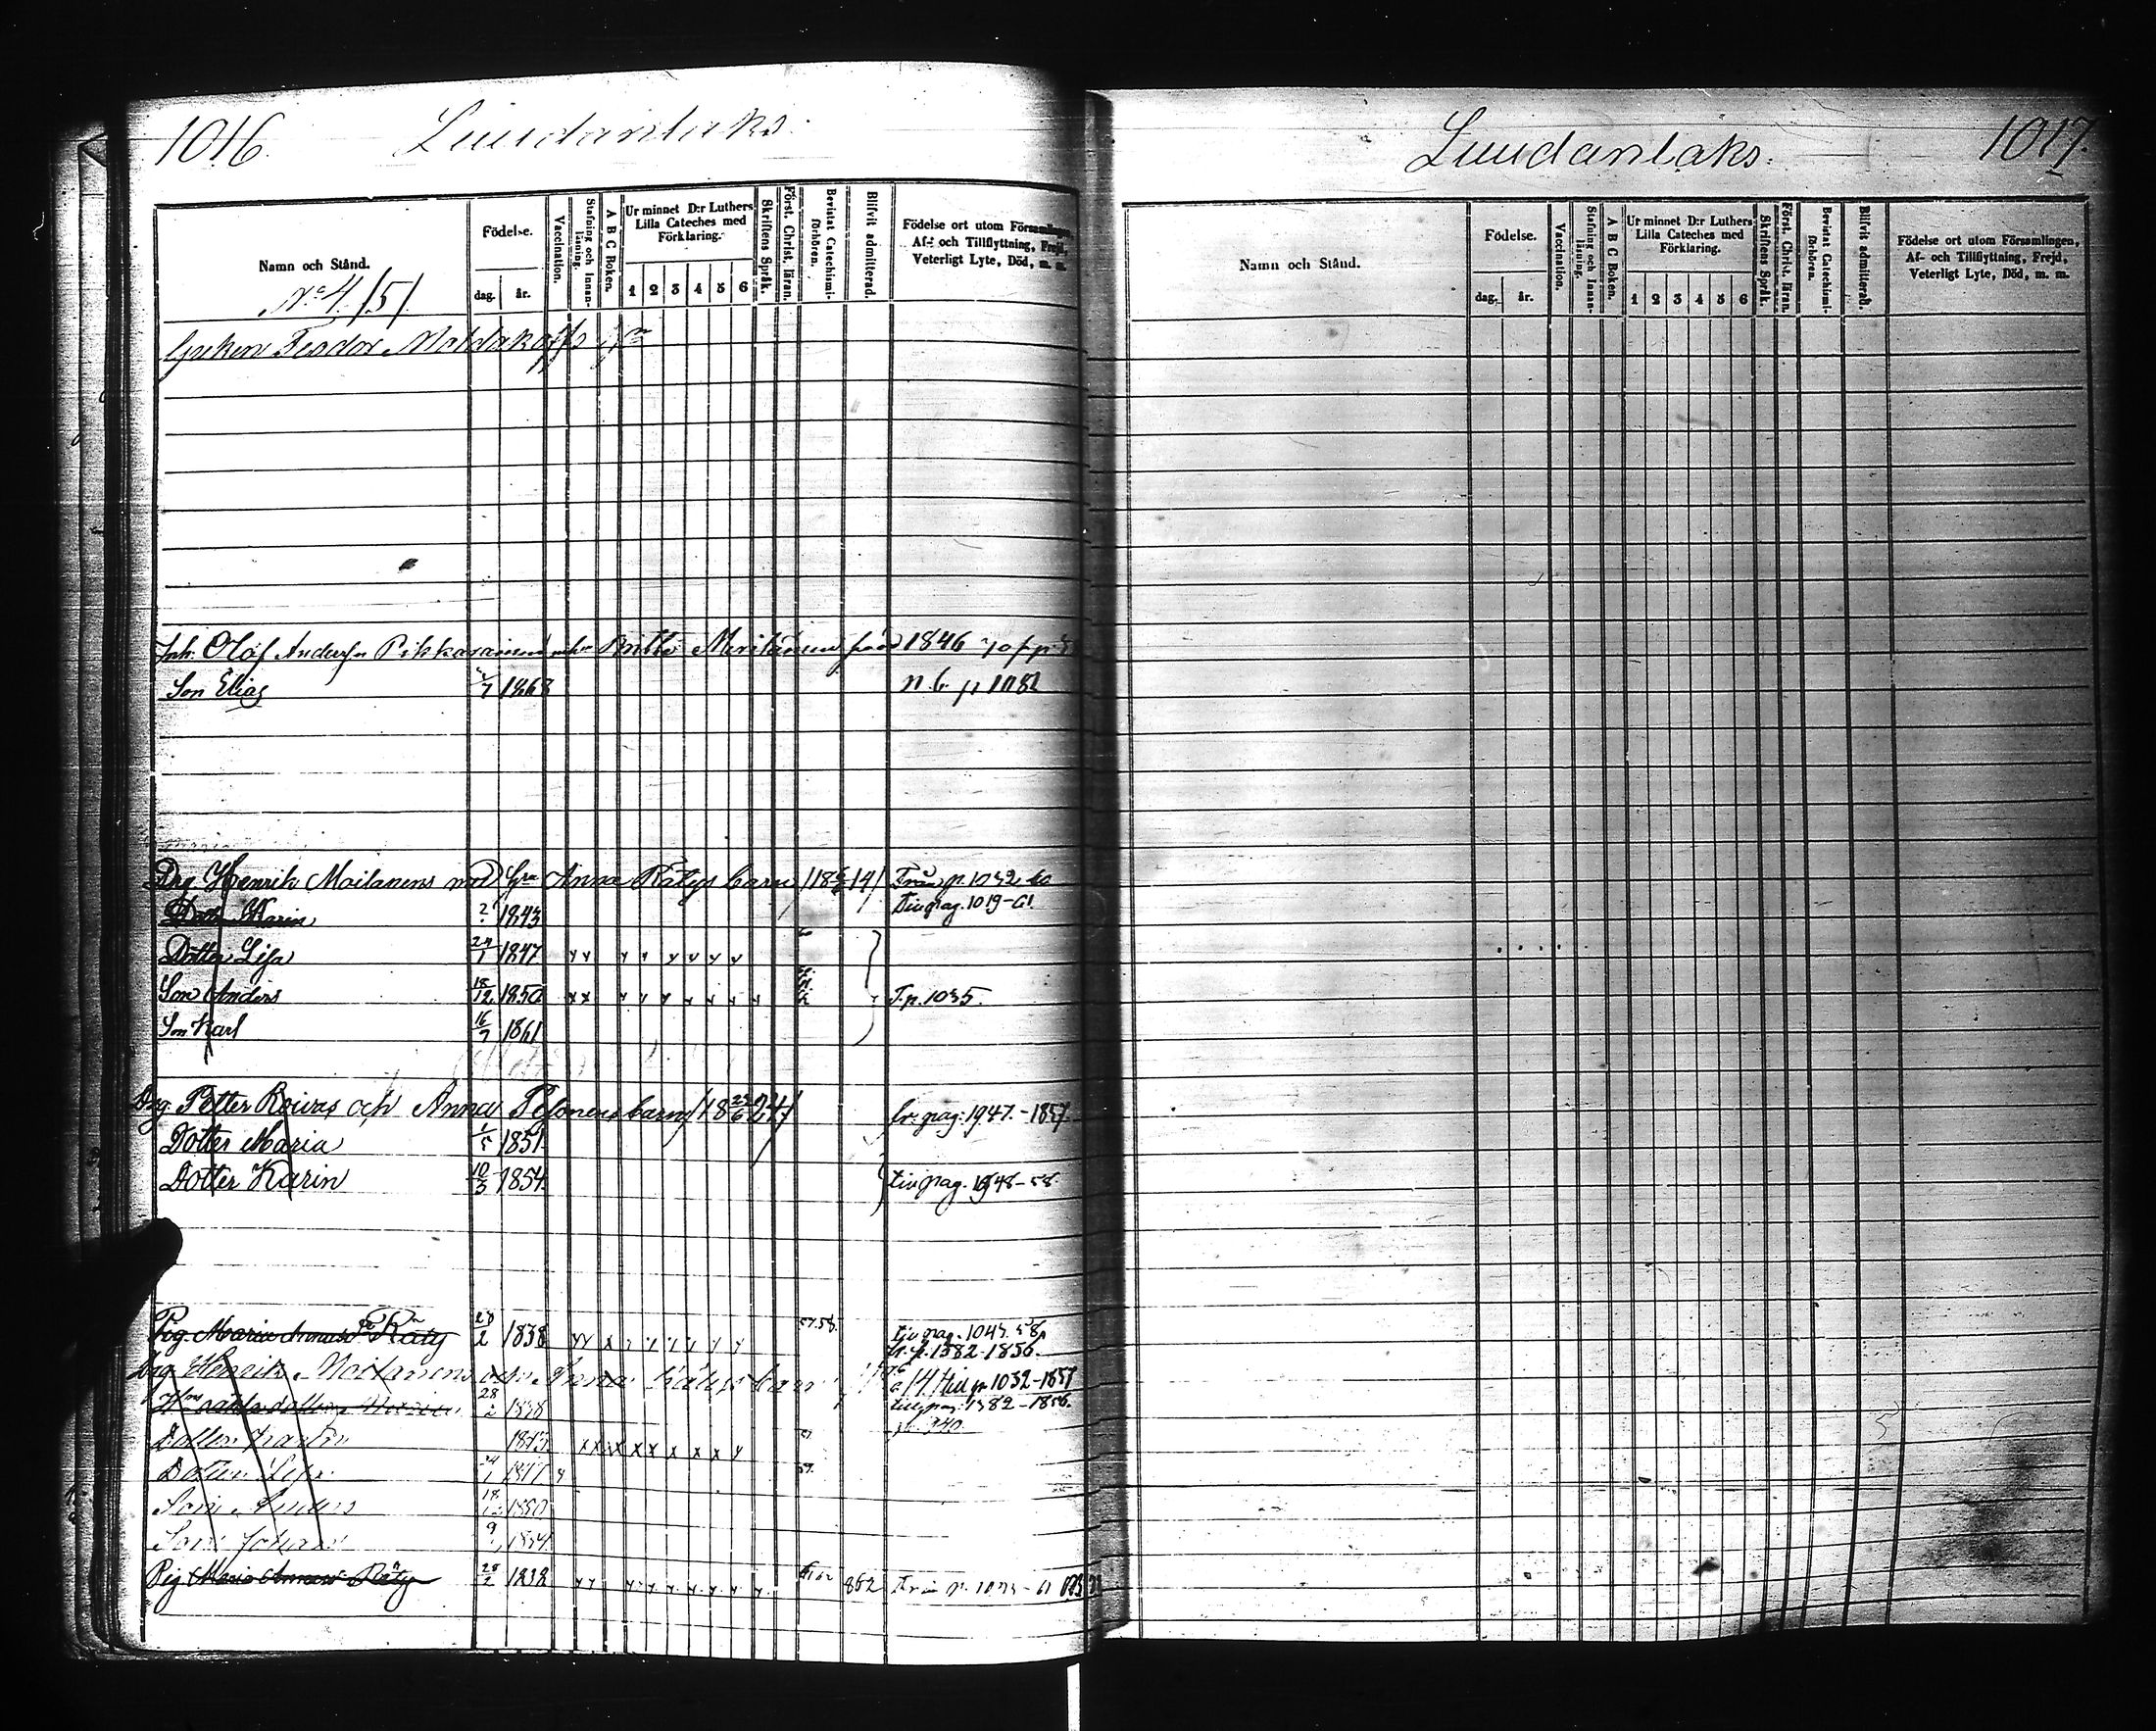 1016. Luudanlaks.
Namn och Stånd.
Födelse.
dag. år.
Vaccination.
Stafning och Innan-läsning.
A B C Boken.
Ur minnet D:r Luthers Lilla Cateches med Förklaring.
1 2 3 4 5 6
Skriftens Språk.
Först. Christ. läran.
Bevistat Catechismi-förhören.
Blifvit admitterad.
Födelse ort utom Församlingen, Af- och Tillflyttning, Frejd, Veterligt Lyte, Död, m. m.
No 4. /5/
Greken Feodor
Olof Andersson Pikkarainen Britta 1846
Son Elias 7 1868 n. 6. p 1082
Drg Henrik Moilanens med Anna Rätys barn Från p. 1032
Dotter Karin 2 1843 Tiv pag. 1019-61.
Dotter Lisa 24/1 1847
Son Anders 18/12 1850 T. p. 1035.
Son Karl 16/7 1861
Drg. Petter Roivas och Anna Pesonens barn fr. pag: 1947.-1857.
Dotter Maria 1/5 1851.
Dotter Karin 10/3 1854. tiv pag. 1948-58.
Pig. Maria Annasd:r Räty 28/2 1838 57.58. tiv pag. 1043. 58
fr. p. 1382-1856.
Drg. Henrik Moilanens och Anna Rätys barn till p. 1032-1857
28/2 1838 till pag. 1382-1856.
Dotter Karin 1843 p. 940
Dotter Lisa 24/1 1847
Son Anders 18/12 1850
Son Johan 9 1854.
Pig Maria Annasd. Räty 28/2 1838 862
Luudanlaks. 1017.
Namn och Stånd.
Födelse.
dag. år.
Vaccination.
Stafning och Innan-läsning.
A B C Boken.
Ur minnet D:r Luthers Lilla Cateches med Förklaring.
1 2 3 4 5 6
Skriftens Språk.
Först. Christ. läran.
Bevistat Catechismi-förhören.
Blifvit admitterad.
Födelse ort utom Församlingen, Af- och Tillflyttning, Frejd, Veterligt Lyte, Död, m. m.